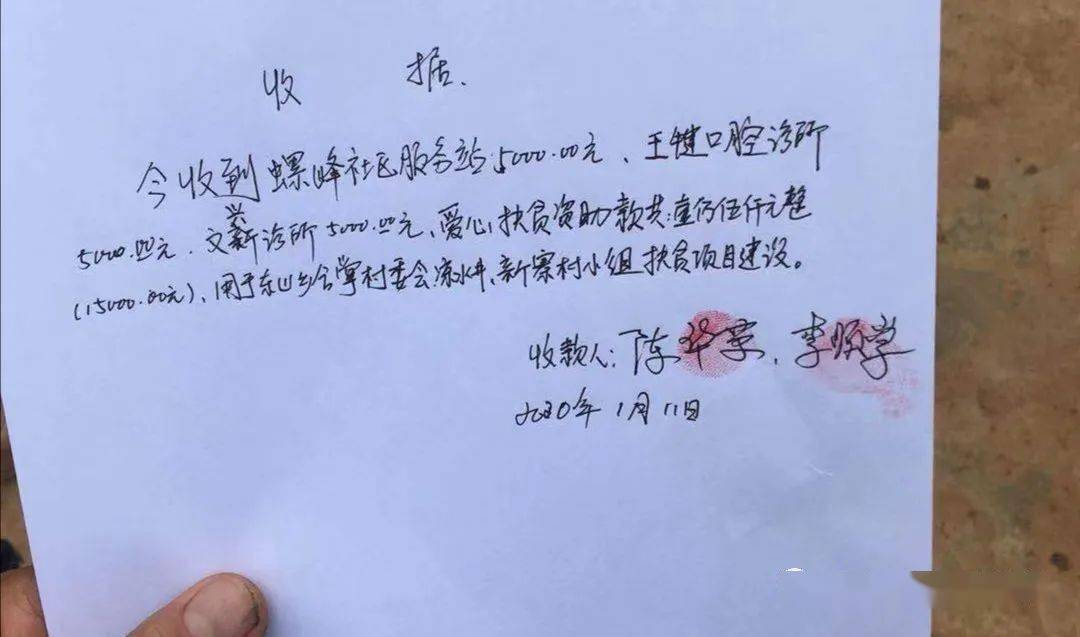 收 据.
今收到螺峰社区服务站5000.00元、王健口腔诊所
5000.00元.文兴诊所5000.00元、爱心扶贫资助款共:壹仟伍仟元整
(15000.00元)、用于东山乡合掌村委会凉水井、新寨村小组扶贫项目建设。
收款人:陈华荣、李顺学
2020年1月11日